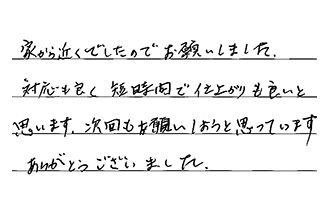 家から近くでしたのでお願いしました.
対応も良く 短時間で仕上がりも良いと
思います. 次回もお願いしようと思っています
ありがとうございました.